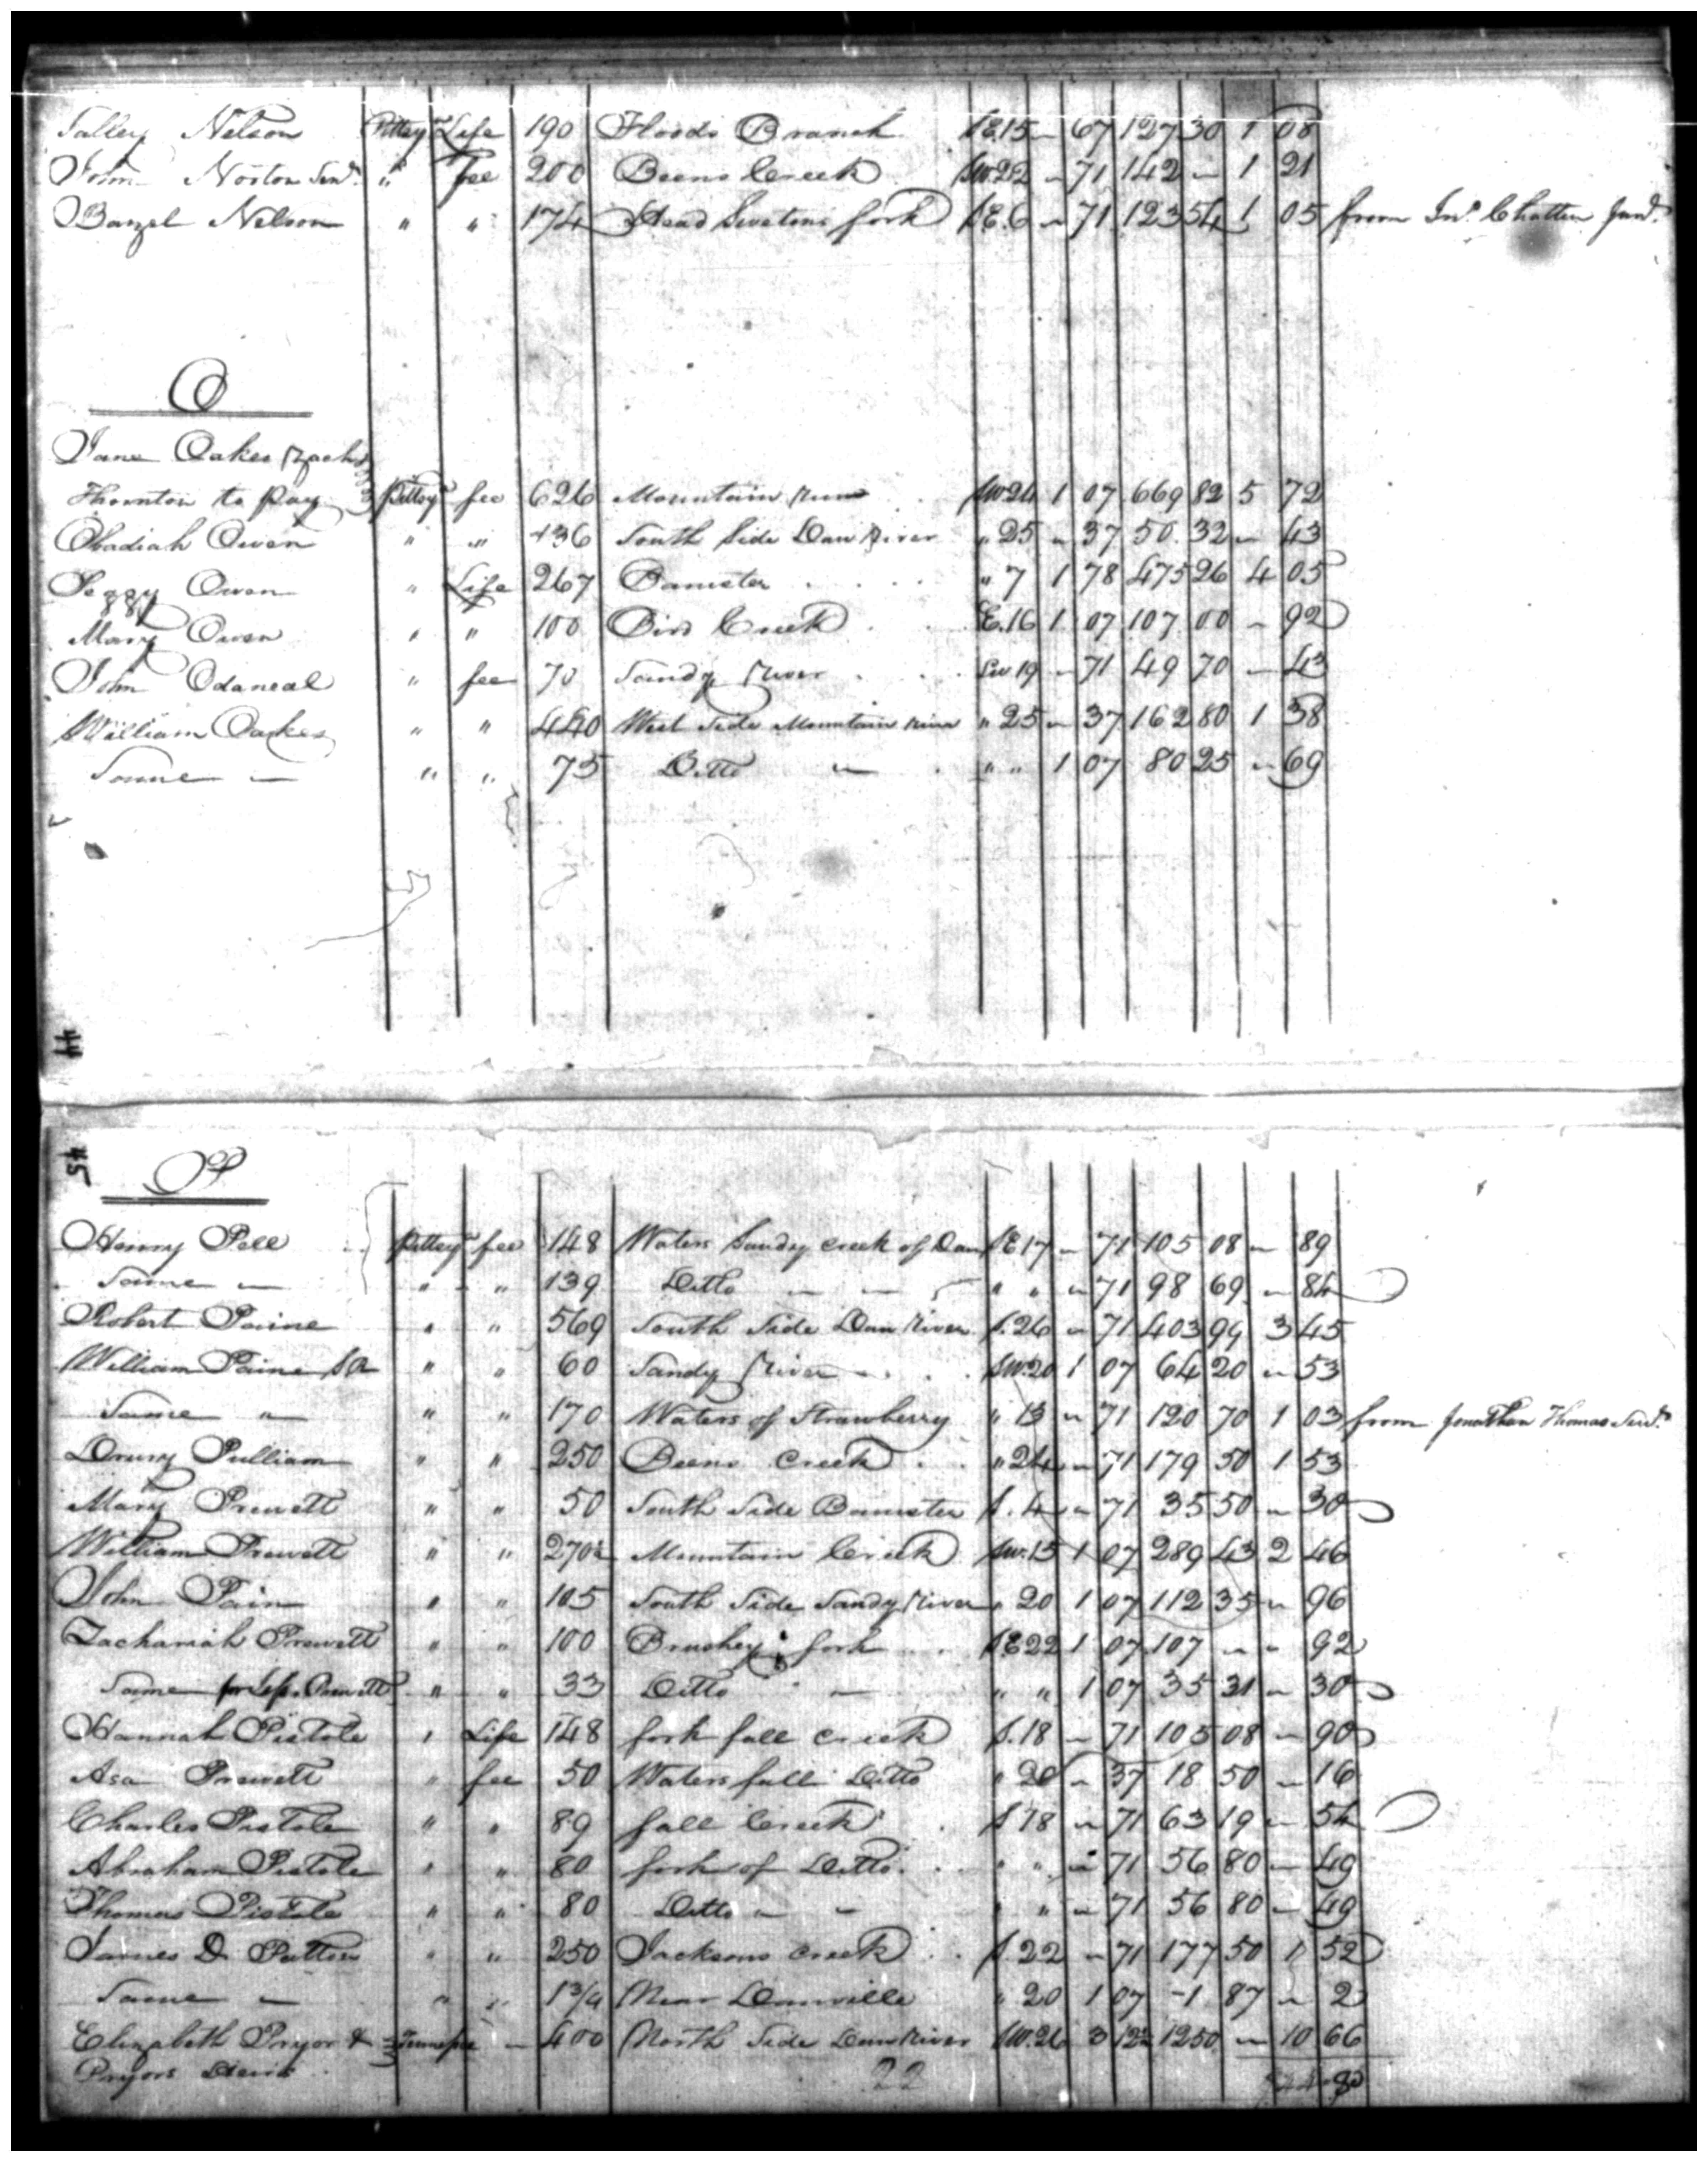 Salley Nelson Pittsya Life 190 Floods Branch SE.15 " 67 127 30 1 08
John Norton Senr. " fee 200 Beens Creek SW 22 " 71 142 " 1 21
Bazel Nelson " " 174 Head Swetons fork SE. 6 " 71 123 54 1 05 from Jno. Chatten Junr.
O
Jane Oakes Zachs
Thornton to pay Pittsya fee 626 Mountain Run SW 24 1 07 669 82 5 72
Obadiah Owen " " 136 South Side Dan River " 25 " 37 50 32 " 43
Peggy Owen " Life 267 Banister " 7 1 78 475 26 4 05
Mary Owen " " 100 Bird Creek E. 16 1 07 107 00 " 92
John Odaneal " fee 70 Sandy River SW 19 " 71 49 70 " 43
William Oakes " " 440 West Side Mountain " 25 " 37 162 80 1 38
Same " " " 75 Ditto " " " 1 07 80 25 " 69
44
45
P
Henry Pell Pittsya fee 148 Waters Sandy Creek of Dan SE 17 " 71 105 08 " 89
Same " " " 139 Ditto " " " " " 71 98 69 " 84
Robert Paine " " 569 South Side Dan River S. 26 " 71 403 99 3 45
William Paine " " 60 Sandy River SW. 20 1 07 64 20 " 53
Same " " " 170 Waters of Strawberry " 13 " 71 120 70 1 03 from Jonathan Thomas Senr.
Drury Pulliam " " 250 Beens Creek " 24 " 71 179 50 1 53
Mary Prewett " " 50 South Side Banister S. 4 " 71 35 50 " 30
William Prewett " " 270½ Mountain Creek SW. 15 1 07 289 43 2 46
John Pain " " 105 South Side Sandy River " 20 1 07 112 35 " 96
Zachariah Prewett " " 100 Brushey fork SE 22 1 07 107 " " 92
Same for Prewett " " 33 Ditto " " " 1 07 35 31 " 30
Hannah Pistole " Life 148 fork fall Creek S. 18 " 71 105 08 " 90
Asa Prewett " fee 50 Waters fall Ditto " 20 " 37 18 50 " 16
Charles Pistole " " 89 fall Creek S 18 " 71 63 19 " 54
Abraham Pistole " " 80 fork of Ditto " " " 71 56 80 " 49
Thomas Pistole " " 80 Ditto " " " " " 71 56 80 " 49
James D Patton " " 250 Jacksons Creek S. 22 " 71 177 50 1 52
Same " " " 1¾ Near Danville " 20 1 07 1 87 " 2
Elizabeth Pryor & " 400 North Side Dan River SW. 26 3 12½ 1250 " 10 66
Pryors Heirs 22